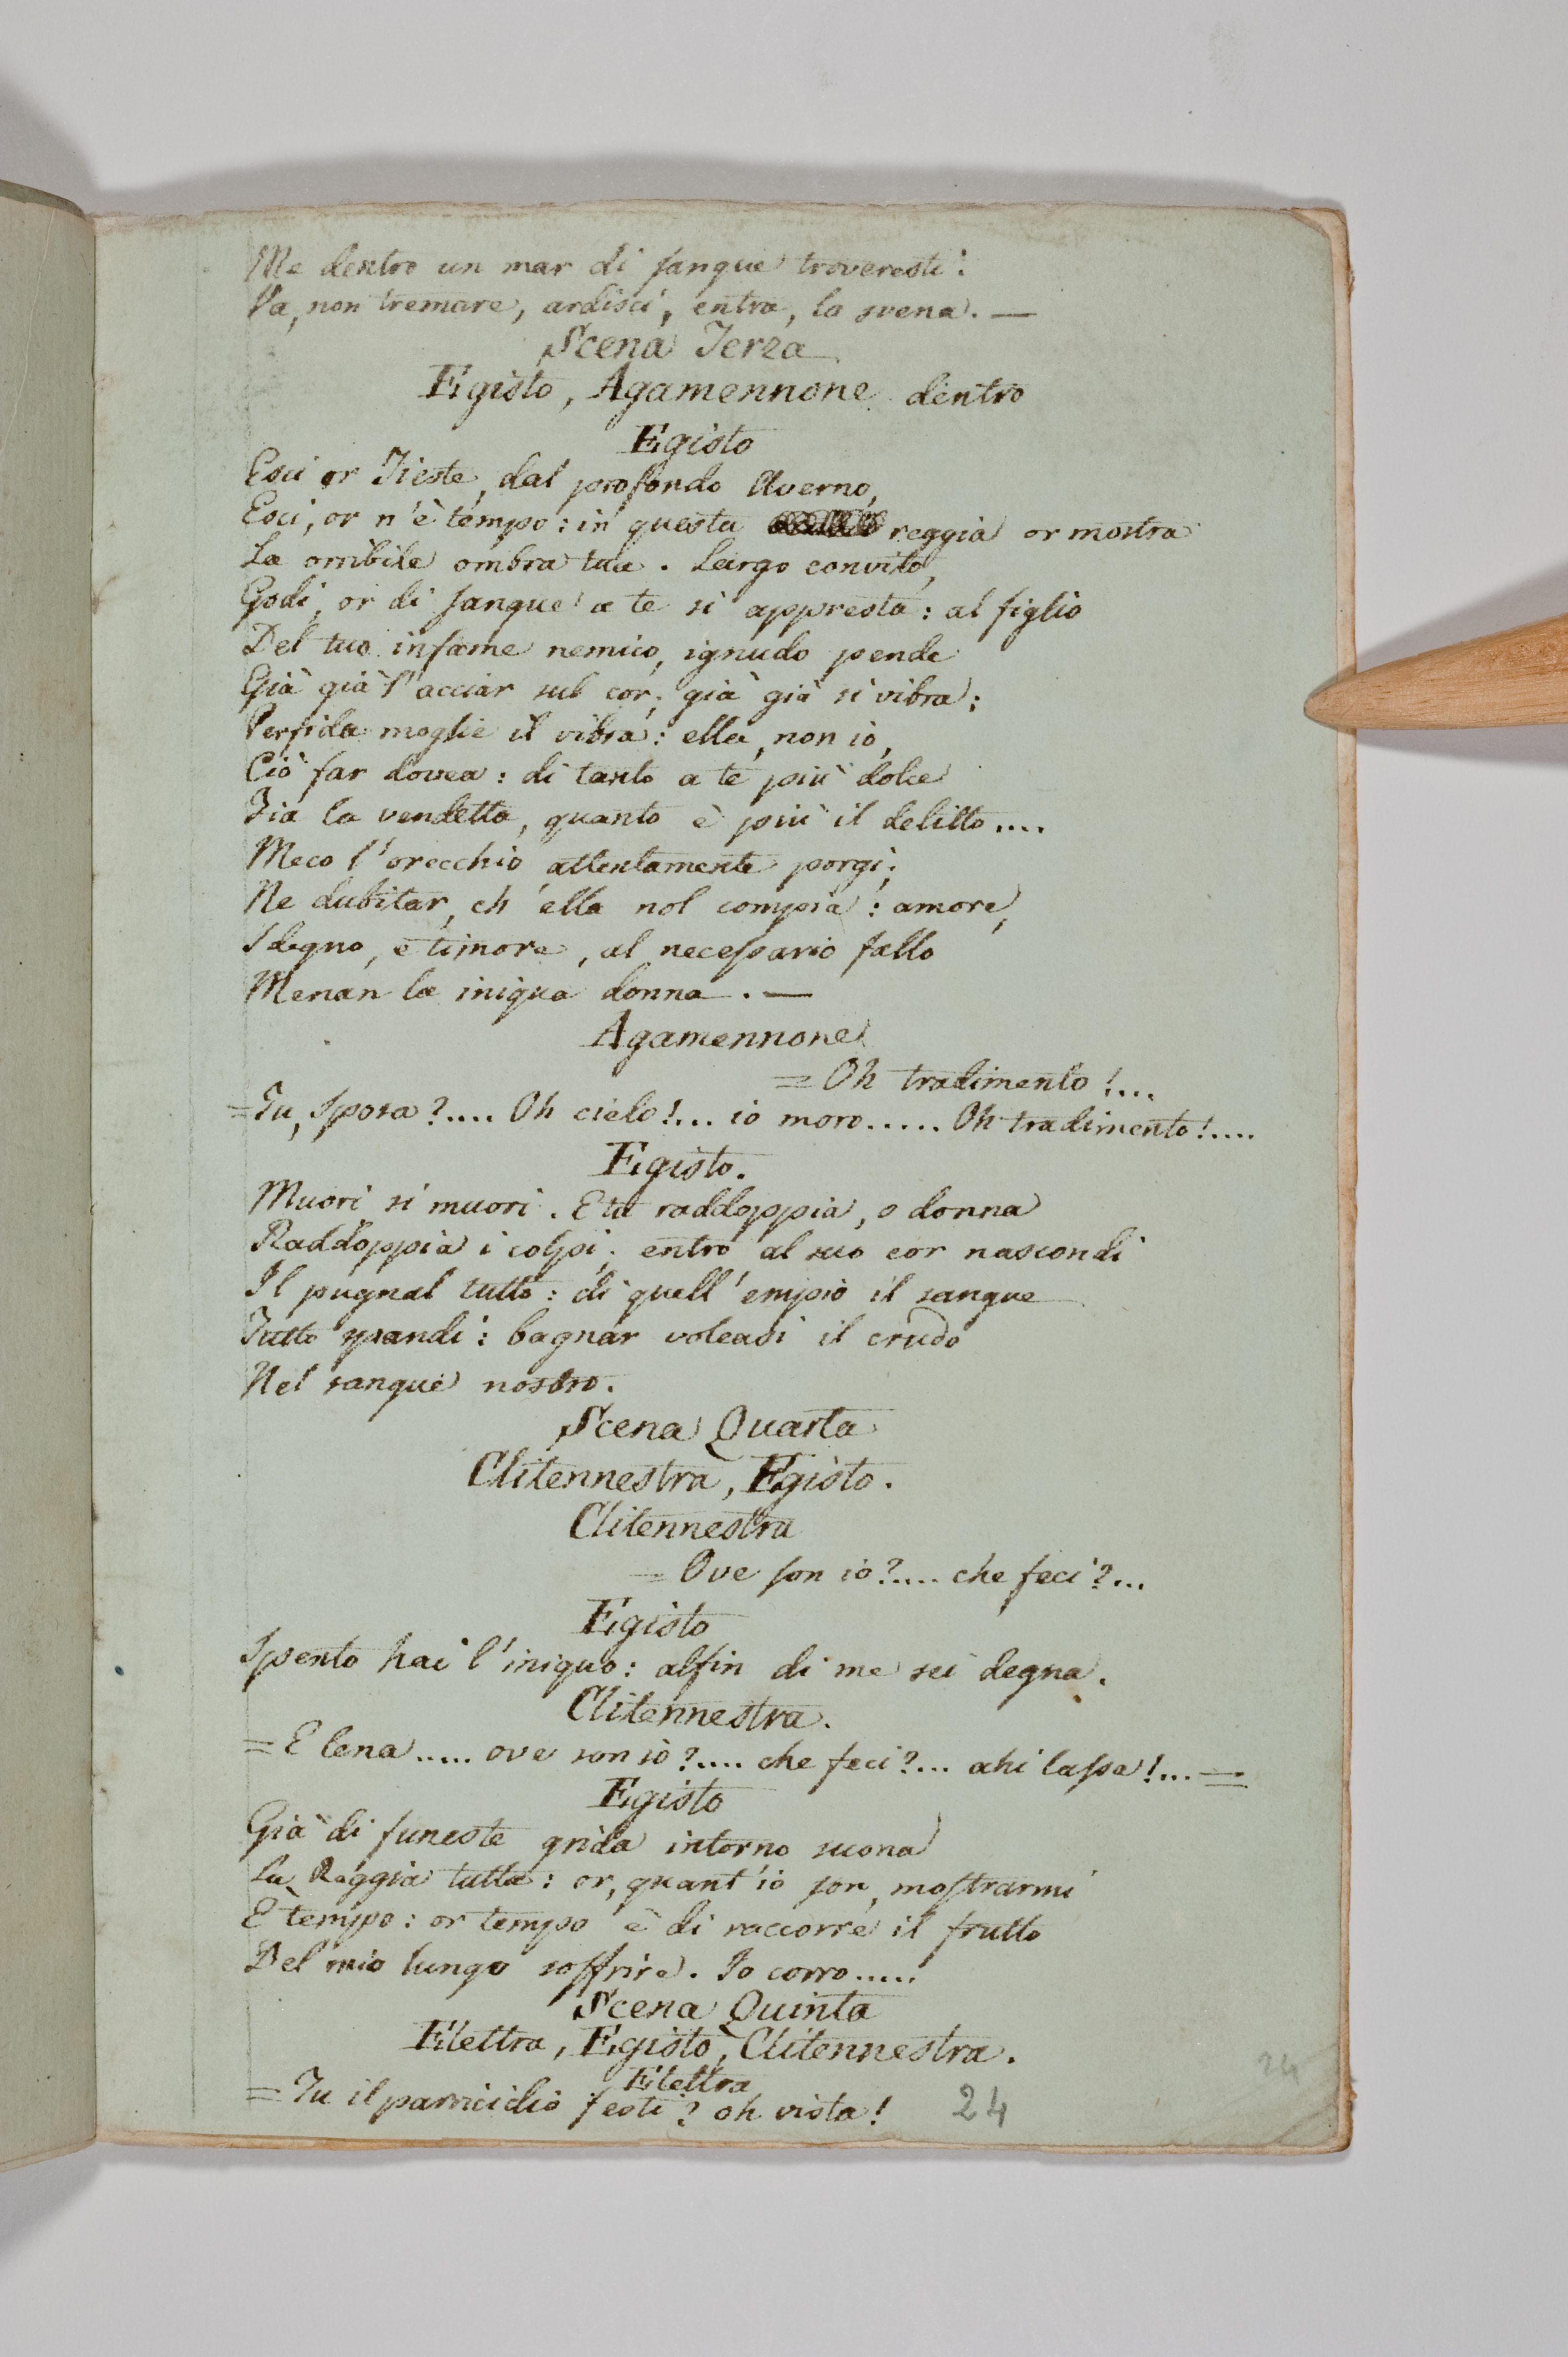 Me dentro un mar di sangue troveresti:
Va, non tremare, ardisci, entra, la svena. —
Scena Terza
Egisto, Agamennone dentro
Egisto
Esci or Tieste, dal profondo Averno,
Esci, or n'è tempo: in questa reggia or mostra
La orribile ombra tua. Largo convito,
Godi, or di sangue a te si appresta: al figlio
Del tuo infame nemico, ignudo pende
Già già l'acciar sul cor; già già si vibra;
Perfida moglie il vibra: ella, non io,
Ciò far dovea: di tanto a te più dolce
Fia la vendetta, quanto è più il delitto....
Meco l'orecchio attentamente porgi;
Ne dubitar, ch'ella nol compia: amore,
Sdegno, e timore, al necessario fallo
Menan la iniqua donna. —
Agamennone
= Oh tradimento!...
= Tu, sposa?.... Oh cielo!... io moro..... Oh tradimento!....
Egisto.
Muori si muori. E tu raddoppia, o donna
Raddoppia i colpi; entro al suo cor nascondi
Il pugnal tutto: di quell'empio il sangue
Tutto spandi: bagnar voleasi il crudo
Nel sangue nostro.
Scena Quarta
Clitennestra, Egisto.
Clitennestra
= Ove son io?.... che feci?...
Egisto
Spento hai l'iniquo: alfin di me sei degna.
Clitennestra.
= E lena..... ove son io?.... che feci?... ahi lassa!... =
Egisto
Già di funeste grida intorno suona
La Reggia tutta: or, quant'io son, mostrarmi
È tempo: or tempo è di raccorre il frutto
Del mio lungo soffrire. Io corro.....
Scena Quinta
Elettra, Egisto, Clitennestra.
Elettra
= Tu il parricidio festi? oh vista!
24
24